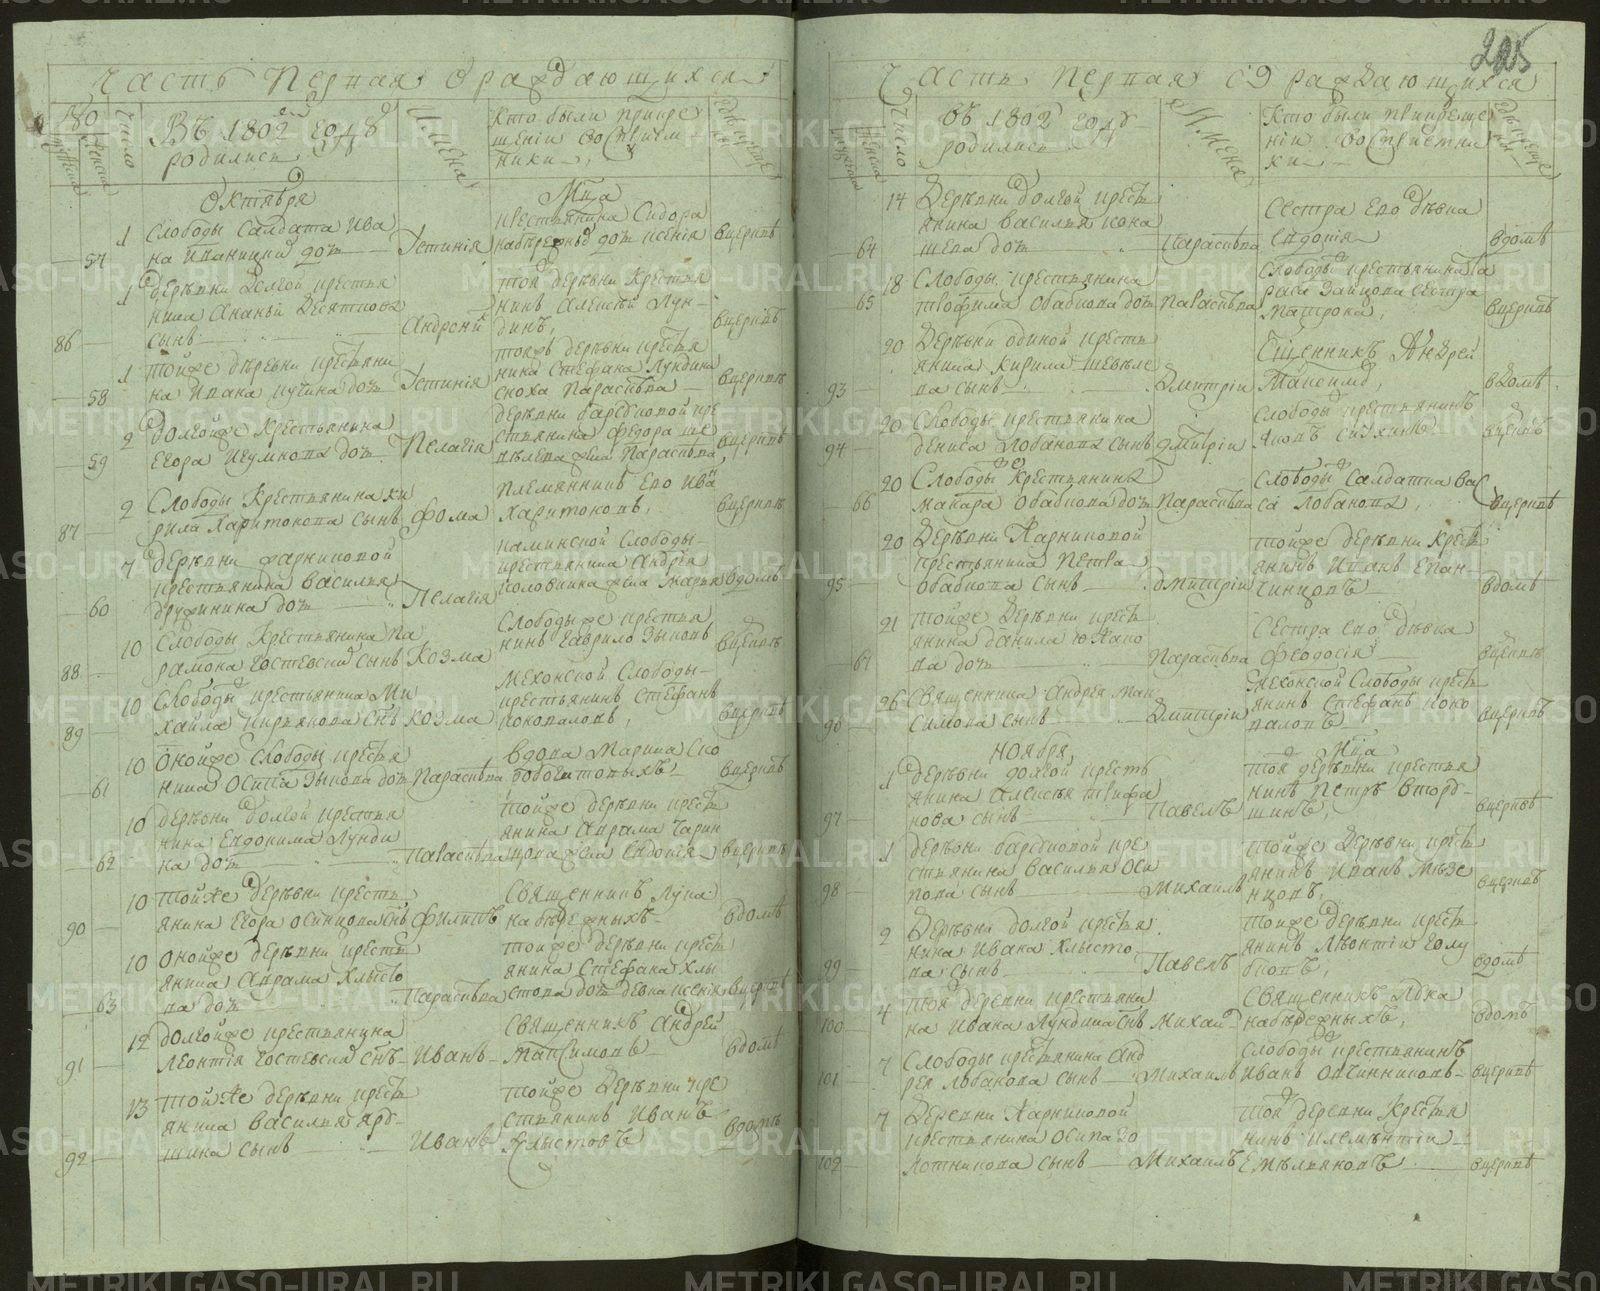 Часть Первая О раждающихся
180
число
Въ 1802 году
родились
Имена
Кто были при кре
щеніи восприем
ники
Октября
Мца
57
1
Слободы Салдата Ива
на дочь
Iустинія
крестьянина Сидора
набережныхъ дочь Ксенія
вцерквѣ
86
1
деревни Долгой крестья
нина Ананьи Десяткова
сынъ
Андроникъ
той деревни Крестья
нинъ Алексѣй Лун
динъ,
вцерквѣ
58
1
тойже деревни крестьяни
на Ивана дочь
Iустинія
тояжъ деревни крестья
нина Стефана Лундина
сноха Парасковья
вцерквѣ
59
2
долгойже Крестьянина
Егора Игумнова дочь
Пелагія
деревни барсуковой кре
стьянина Федора
жена Парасковья,
вцерквѣ
87
2
Слободы Крестьянина ки
рила Харитонова сынъ
фома
племянникъ Его Иванъ
Харитоновъ,
вцерквѣ
60
7
деревни парниковой
крестьянина василья
дружинина дочь
Пелагія
каминской Слободы
крестьянина Андрея
головкина жена Марья
вдомѣ
88
10
Слободы Крестьянина Па
рамона Гостевскаго сынъ
козма
Слободы же крестья
нинъ Гаврило Зыковъ
вцерквѣ
89
10
Слободы крестьянина Ми
хайла Кирьянова снъ
козма
Мехонской Слободы
крестьянинъ Стефанъ
коноваловъ,
вцерквѣ
61
10
Онойже Слободы крестья
нина Осипа Зыкова дочь
Парасковья
вдова Марина Ско
вцерквѣ
62
10
деревни Долгой крестья
нина Евдокима Лунди
на дочь
Парасковья
тойже деревни крест
янина Абрама Чарик
кова жена Евдокія
вцерквѣ
90
10
тойже деревни кресть
янина Егора Осинцова снъ
филипъ
Священникъ Лука
набережныхъ
вдомѣ
63
10
Онойже деревни кресть
янина Абрама Хлысто
ва дочь
Парасковья
тойже деревни крест
янина Стефана Хлы
стова дочь девка Ксенія
вцерквѣ
91
12
долгойже крестьянина
леонтія Гостевскаго снъ
Иванъ
Священникъ Андрей
Максимовъ
вдомѣ
92
13
тойже деревни крест
янина василья ярд
шина сынъ
Иванъ
тойже Деревни кре
стьянинъ Иванъ
Хлыстовъ
вдомѣ
205
Часть Первая О раждающихся
число
Въ 1802 году
родились
Имена
Кто были при креще
ніи восприемни
ки
64
14
Деревни Долгой крест
янина василья кока
шева дочь
Парасковья
Сестра Его дѣвка
Евдокія
вдомѣ
65
18
Слободы крестьянина
трофима Обабкова дочь
Парасковья
Слободы крестьянина Та
раса Зайкова сестра
Матрона,
вцерквѣ
93
20
Деревни одиной кресть
янина кирила шевеле
ва сынъ
Димитрій
Священникъ Андрей
Максимов,
вдомѣ
94
20
Слободы крестьянина
дениса лобанова сынъ
дмитрій
Слободы крестьянинъ
Яковъ
вцерквѣ
66
20
Слободы же Крестьянина
макара Обабкова дочь
Парасковья
Слободы Салдатка Ва
са Лобанова,
вцерквѣ
95
20
Деревни Парниковой
крестьянина Петра
Обабкова сынъ
дмитрій
тойже деревни крест
янинъ Иванъ Епан
чинцовъ
вдомѣ
67
21
тойже Деревни крест
янина данила
ва дочь
Парасковья
Сестра Его дѣвка
феодосія
вцерквѣ
96
26
Священника Андрея Мак
симова сынъ
Димитрій
Мехонской Слободы крест
янинъ Стефанъ Коно
валовъ
вцерквѣ
Ноября
Мца
97
1
деревни долгой кресть
янина Алексѣя трифа
нова сынъ
Павелъ
той деревни крестья
нинъ Петръ Вторы
шинъ,
вцерквѣ
98
1
деревни барсуковой кре
стьянина Василья Оси
пова сынъ
Михаилъ
тойже Деревни крест
янинъ Иванъ Мезе
нцовъ,
вцерквѣ
99
2
Деревни долгой крестья
нина Ивана Хлысто
ва сынъ
Павелъ
тойже Деревни крест
янинъ Леонтій Голу
бковъ,
вдомѣ
100
4
той деревни крестьяни
на Ивана Лундина снъ
Михаилъ
Священникъ Лука
набережныхъ,
вдомѣ
101
7
Слободы крестьянина Анд
рея лобанова сынъ
Михаилъ
Слободы крестьянинъ
Иванъ Овчинниковъ
вцерквѣ
102
7
Деревни Парниковой
крестьянина Осипа Зо
лотникова сынъ
Михаилъ
той деревни Крестья
нинъ Клементій
Емельяновъ
вцерквѣ
METRIKI.GASO-URAL.RU